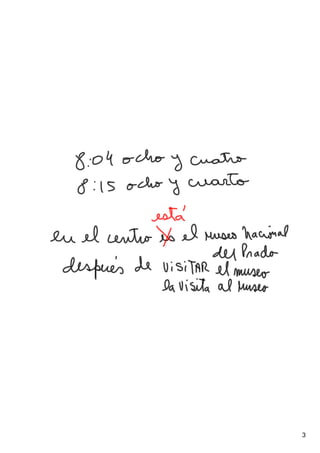 8:04 ocho y cuatro
8:15 ocho y cuarto
está
en el centro es el Museo Nacional
del Prado
después de VISITAR el museo
la visita al Museo
3